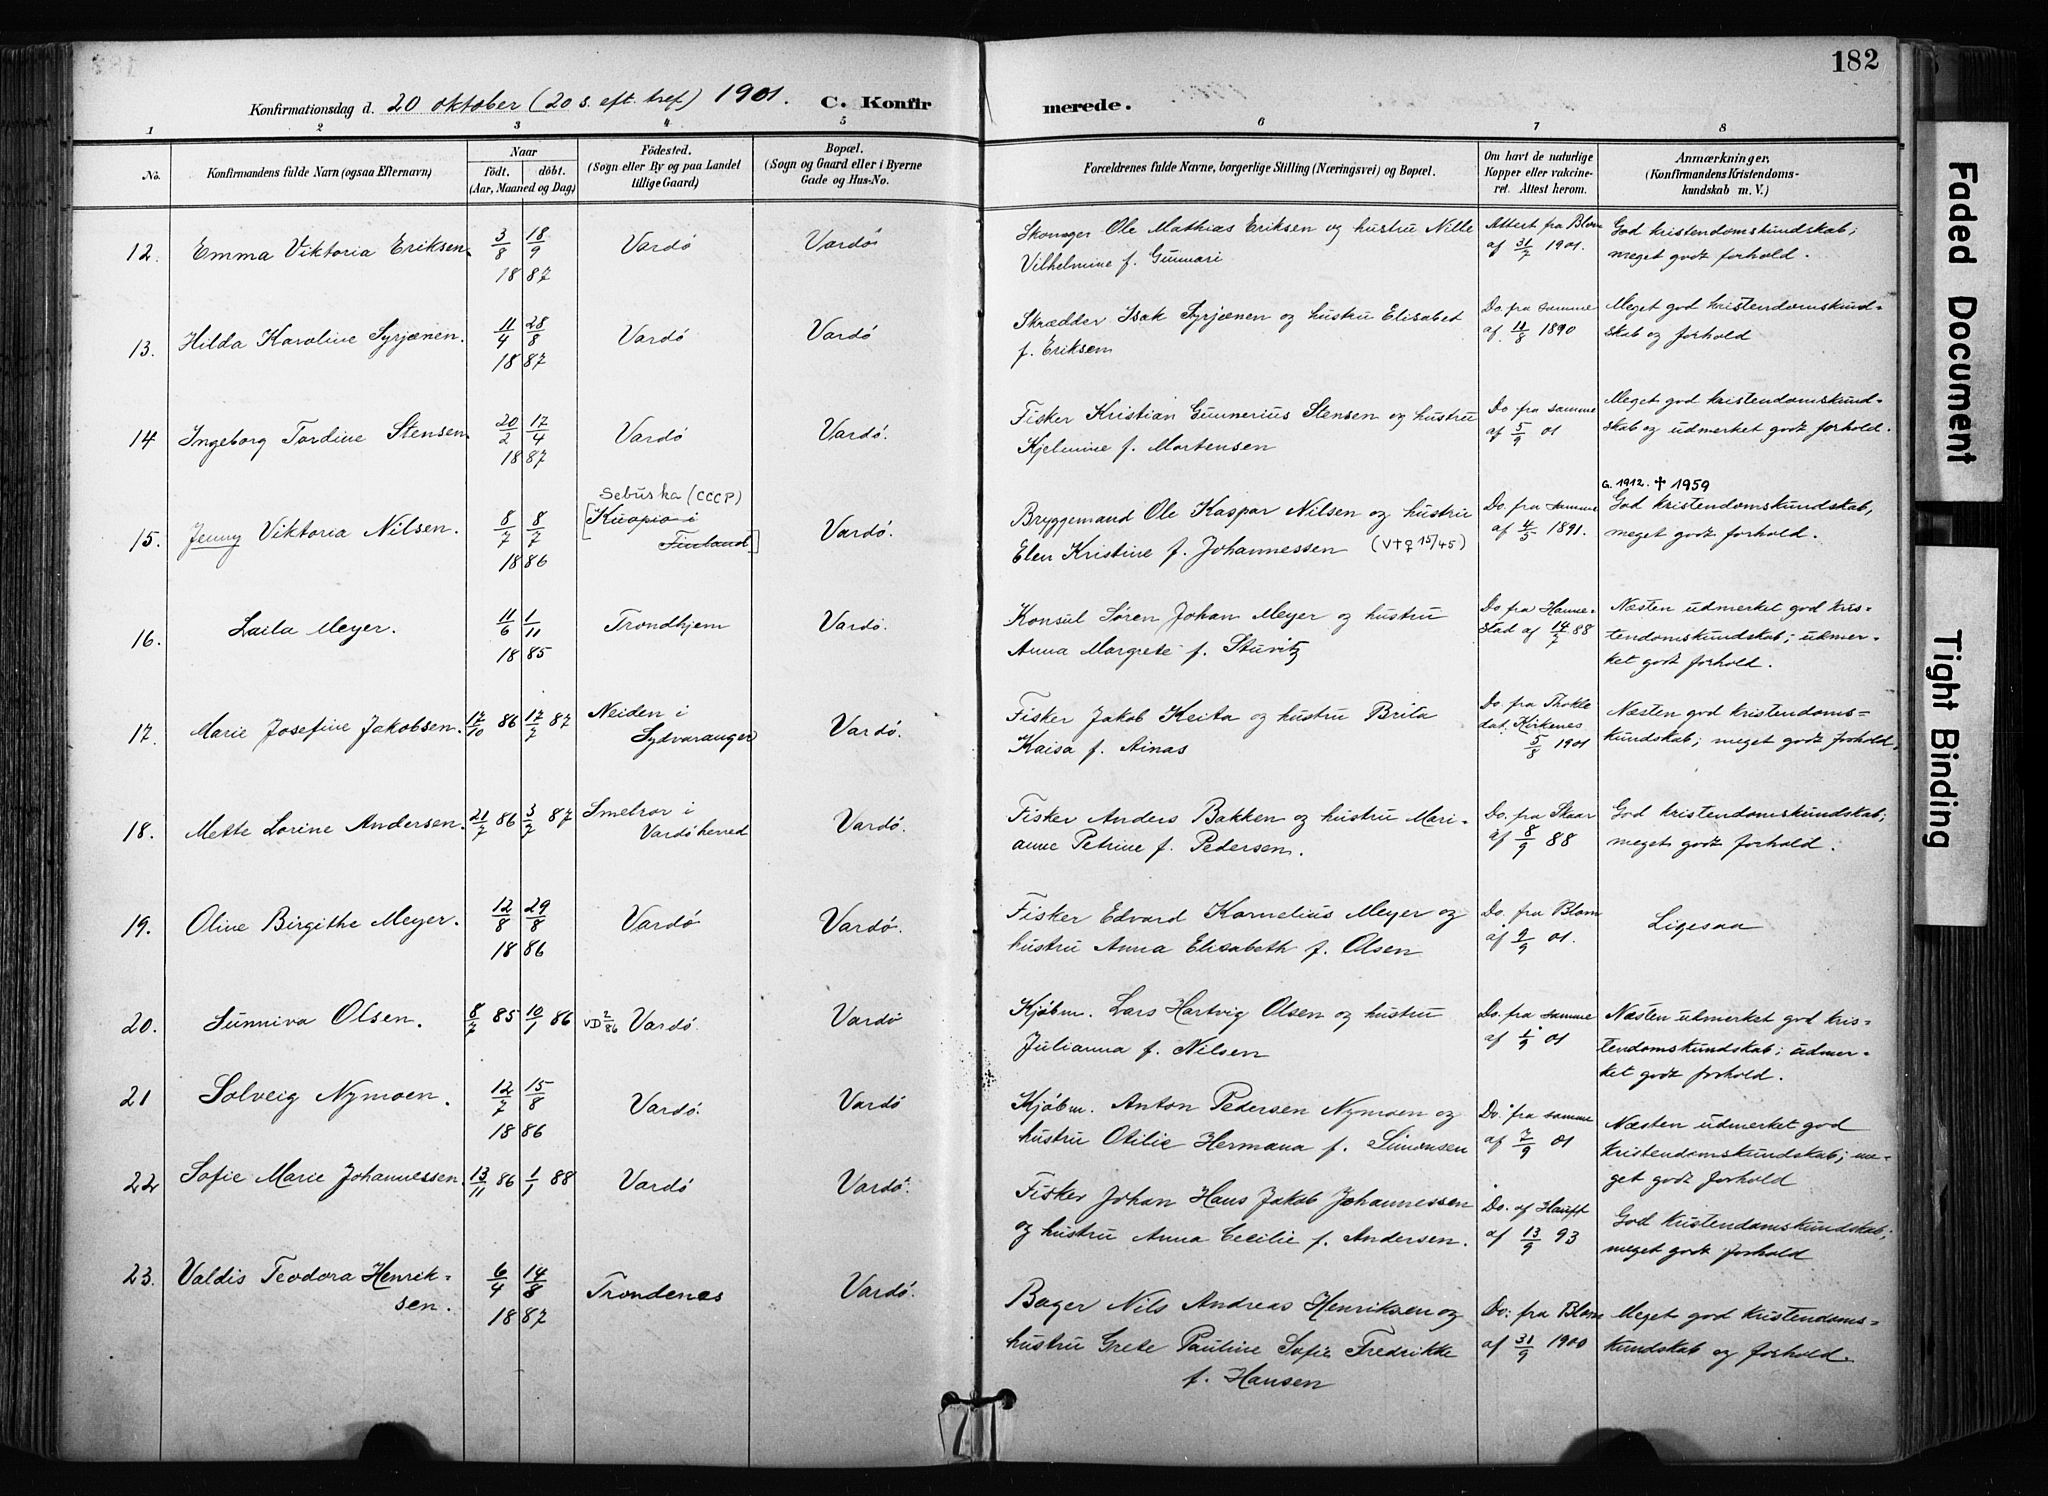 182
Konfirmationsdag d. 20 oktober (20 s. eft. tref.) 1901. C. Konfirmerede.
1 2 3 4 5 6 7 8
No. Konfirmandens fulde Navn (ogsaa Efternavn) Naar født. døbt. (Aar, Maaned og Dag) Fødested. (Sogn eller By og paa Landet tillige Gaard) Bopæl. (Sogn og Gaard eller i Byerne Gade og Hus-No. Forældrenes fulde Navne, borgerlige Stilling (Næringsvei) og Bopæl. Om havt de naturlige Kopper eller vakcineret. Attest herom. Anmærkninger, (Konfirmandens Kristendomskundskab m. V.)
12. Emma Viktoria Eriksen. 3/8 18/9 1887 Vardö Vardö Skomager Ole Mathias Eriksen og hustru Nille Attest fra Blom God kristendomskundskab;
Vilhelmine f. Gunnari af 31/7 1901. meget godt forhold.
13. Hilda Karoline Syrjænen. 11/4 28/8 1887 Vardö Vardö Skrædder Isak Syrjænen og hustru Elisabet Do. fra samme Meget god kristendomskund-
f. Eriksen af 11/8 1890 skab og forhold
14 Ingeborg Tordine Stensen. 20/2 17/4 1887 Vardö Vardö. Fisker Kristian Gunnerius Stensen og hustru Do fra samme Meget god kristendomskund-
Kjelmine f. Martensen af 5/9 01 skab og udmerket godt forhold.
Sebuska (CCCP) G. 1912. ✝ 1959
15. Jenny Viktoria Nilsen. 8/7 8/7 1886 [Kuopio i Finland] Vardö. Bryggemand Ole Kaspar Nilsen og hustru Do. fra samme God kristendomskundskab,
Elen Kristine f. Johannessen (V✝♀ 15/45) af 4/5 1891. meget godt forhold.
16. Laila Meyer. 11/6 1/11 1885 Trondhjem Vardö. Konsul Søren Johan Meyer og hustru Do fra Hanne- Næsten udmerket god kris-
Anna Margrete f. Stuvitz stad af 14/7 88 tendomskundskab; udmer-
ket godt forhold.
17. Marie Josefine Jakobsen. 17/10 86 17/7 87 Neiden i Sydvaranger Vardö. Fisker Jakob Keita og hustru Brita Do. fra Thokle Næsten god kristendoms-
Kaisa f. Ainas dat. Kirkenes kundskab; meget godt forhold.
5/8 1901
18. Mette Lorine Andersen. 21/7 86 3/7 87 Smelror i Vardö herred Vardö. Fisker Anders Bakken og hustru Mari- Do. fra Skaar God kristendomskundskab;
anne Petrine f. Pedersen. af 8/9 88 meget godt forhold.
19. Oline Birgithe Meyer. 12/8 29/8 1886 Vardö Vardö. Fisker Edvard Kornelius Meyer og Do. fra Blom Ligesaa
hustru Anna Elisabeth f. Olsen af 9/9 01.
20. Sunniva Olsen. 8/7 85 10/1 86 VD 2/86 Vardö. Vardö Kjøbm. Lars Hartvig Olsen og hustru Do. fra samme Næsten udmerket god kris-
Julianna f. Nilsen af 1/9 01 tendomskundskab; udmer-
ket godt forhold.
21 Solveig Nymoen. 12/7 15/8 1886 Vardö. Vardö Kjøbm. Anton Pedersen Nymoen og Do. fra samme Næsten udmerket god
hustru Otilie Hermana f. Simonsen af 7/9 01 kristendomskundskab; me-
get godt forhold
22 Sofie Marie Johannessen. 13/11 86 1/1 88 Vardö Vardö. Fisker Johan Hans Jakob Johannessen Do. af Hauft God kristendomskundskab;
og hustru Anna Cecilie f. Andersen. af 13/9 93 meget godt forhold
23. Valdis Teodora Henrik- 6/4 14/8 1887 Trondenes Vardö. Bager Nils Andreas Henriksen og Do. fra Blom Meget god kristendoms-
sen. hustru Grete Pauline Sofie Fredrikke af 31/9 1900 kundskab og forhold.
f. Hansen
Faded Document
Tight Binding